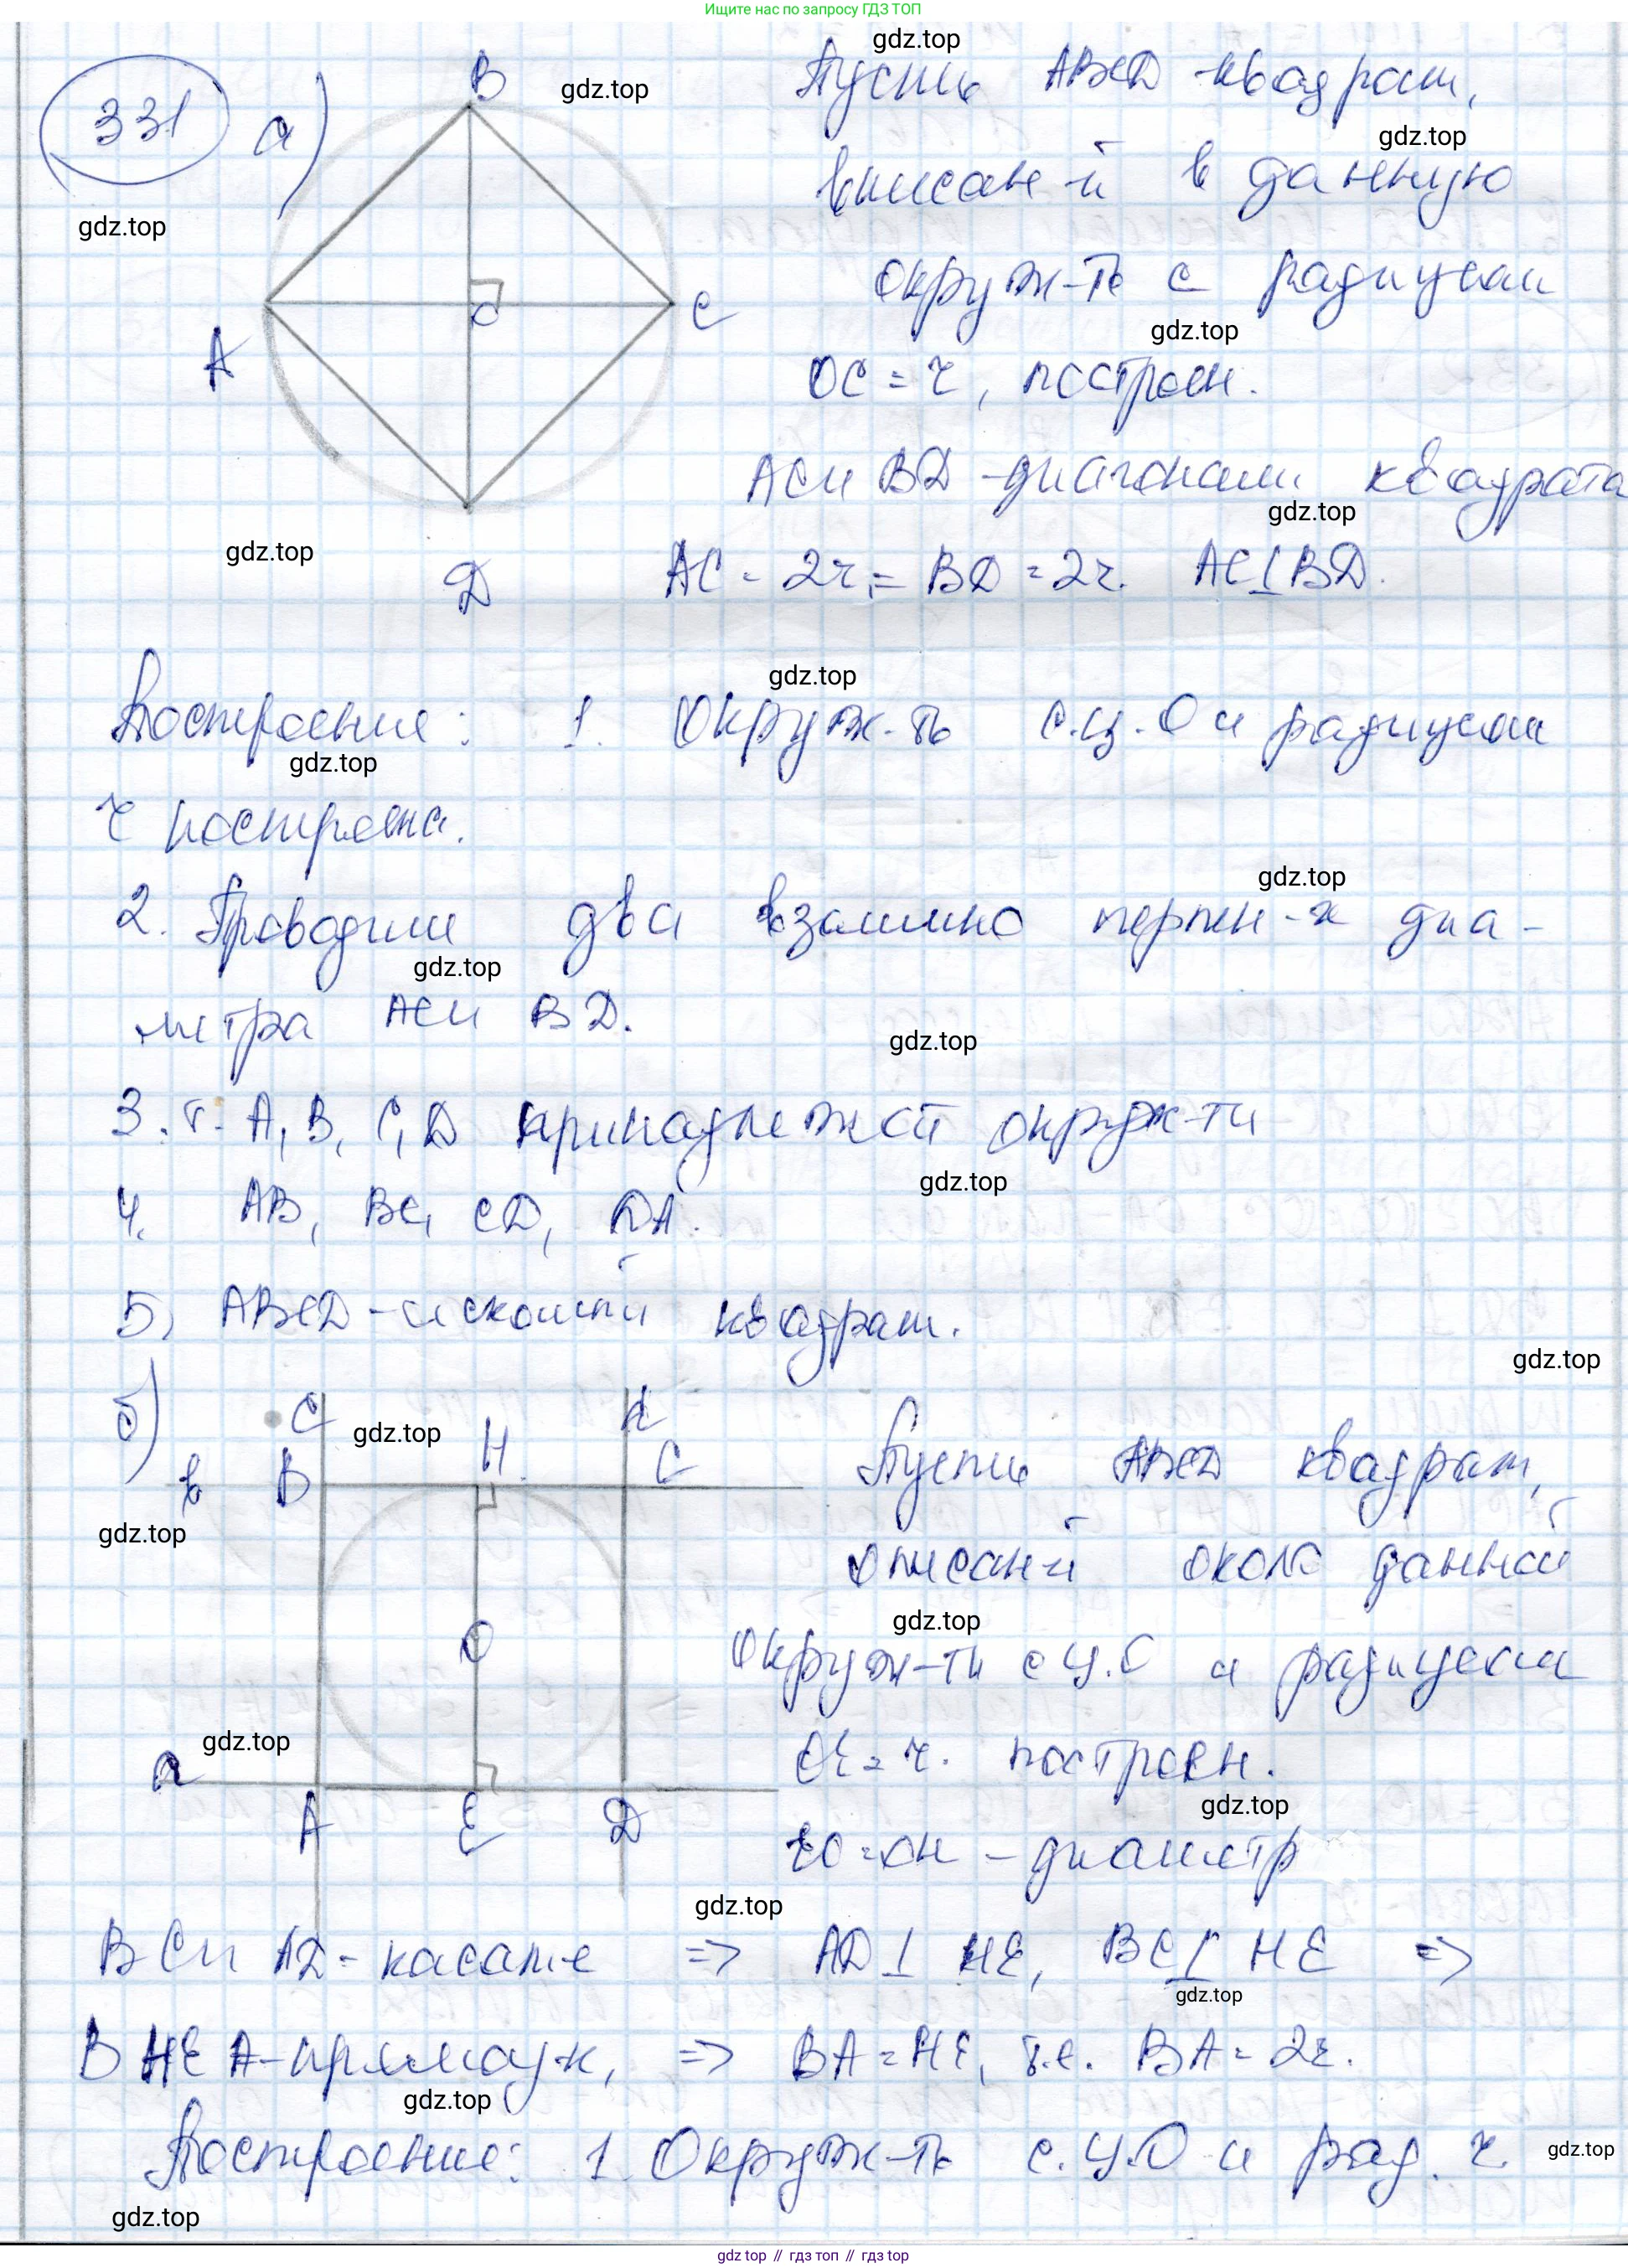 Ищите нас по запросу ГДЗ ТОП
gdz.top
331 а)
B
gdz.top
Пусть ABCD - квадрат,
gdz.top
вписан-й в данную
gdz.top
окруж-ть с радиусом
O
C
gdz.top
A
OC = r, построен.
AC и BD - диагонали квадрата
gdz.top
gdz.top
D
AC = 2r, = BD = 2r. AC ⊥ BD.
gdz.top
Построение: 1. Окруж-ть с.ц. O и радиусом
gdz.top
r построена.
gdz.top
2. Проводим два взаимно перпен-х диа-
gdz.top
метра AC и BD.
gdz.top
3. т. A, B, C, D принадлежат окруж-ти
gdz.top
4. AB, BC, CD, DA.
5) ABCD - искомый квадрат.
gdz.top
б)
C
gdz.top
H
d
C
в
B
Пусть ABCD квадрат,
gdz.top
описан-й около данной
gdz.top
O
окруж-ти с ц. O и радиусом
gdz.top
a
OE = r. построен.
gdz.top
A
E
D
EO = OH - диаметр
gdz.top
BC и AD - касат-е => AD ⊥ HE, BC ⊥ HE =>
gdz.top
BHEA - прямоуг-к, => BA = HE, т.е. BA = 2r.
gdz.top
Построение: 1. Окруж-ть с.ц.O и рад. r.
gdz.top
gdz.top
gdz.top // гдз топ // гдз.top